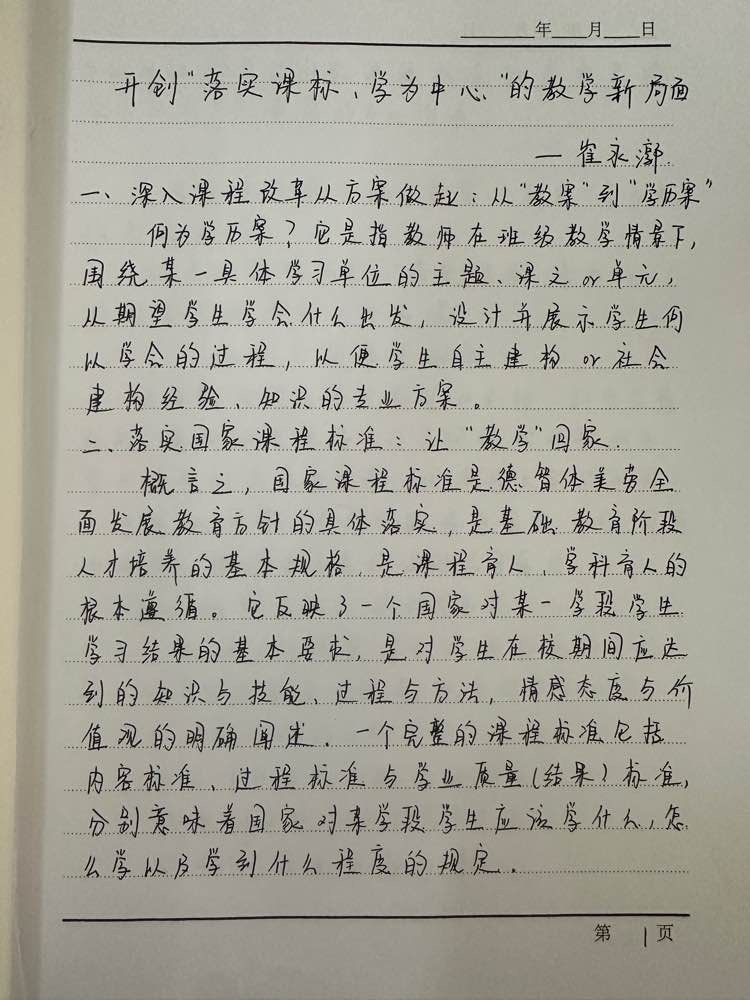 年 月 日
开创“落实课标、学为中心”的教学新局面
— 崔永漷.
一、深入课程改革从方案做起：从“教案”到“学历案”
何为学历案？它是指教师在班级教学情景下，
围绕某一具体学习单位的主题、课文or单元，
从期望学生学会什么出发，设计并展示学生何
以学会的过程，以便学生自主建构or社会
建构经验、知识的专业方案。
二、落实国家课程标准：让“教学”回家.
概言之，国家课程标准是德智体美劳全
面发展教育方针的具体落实，是基础教育阶段
人才培养的基本规格，是课程育人、学科育人的
根本遵循。它反映了一个国家对某一学段学生
学习结果的基本要求，是对学生在校期间应达
到的知识与技能、过程与方法，情感态度与价
值观的明确阐述．一个完整的课程标准包括
内容标准、过程标准与学业质量(结果)标准，
分别意味着国家对某学段学生应该学什么，怎
么学以及学到什么程度的规定．
第 1 页